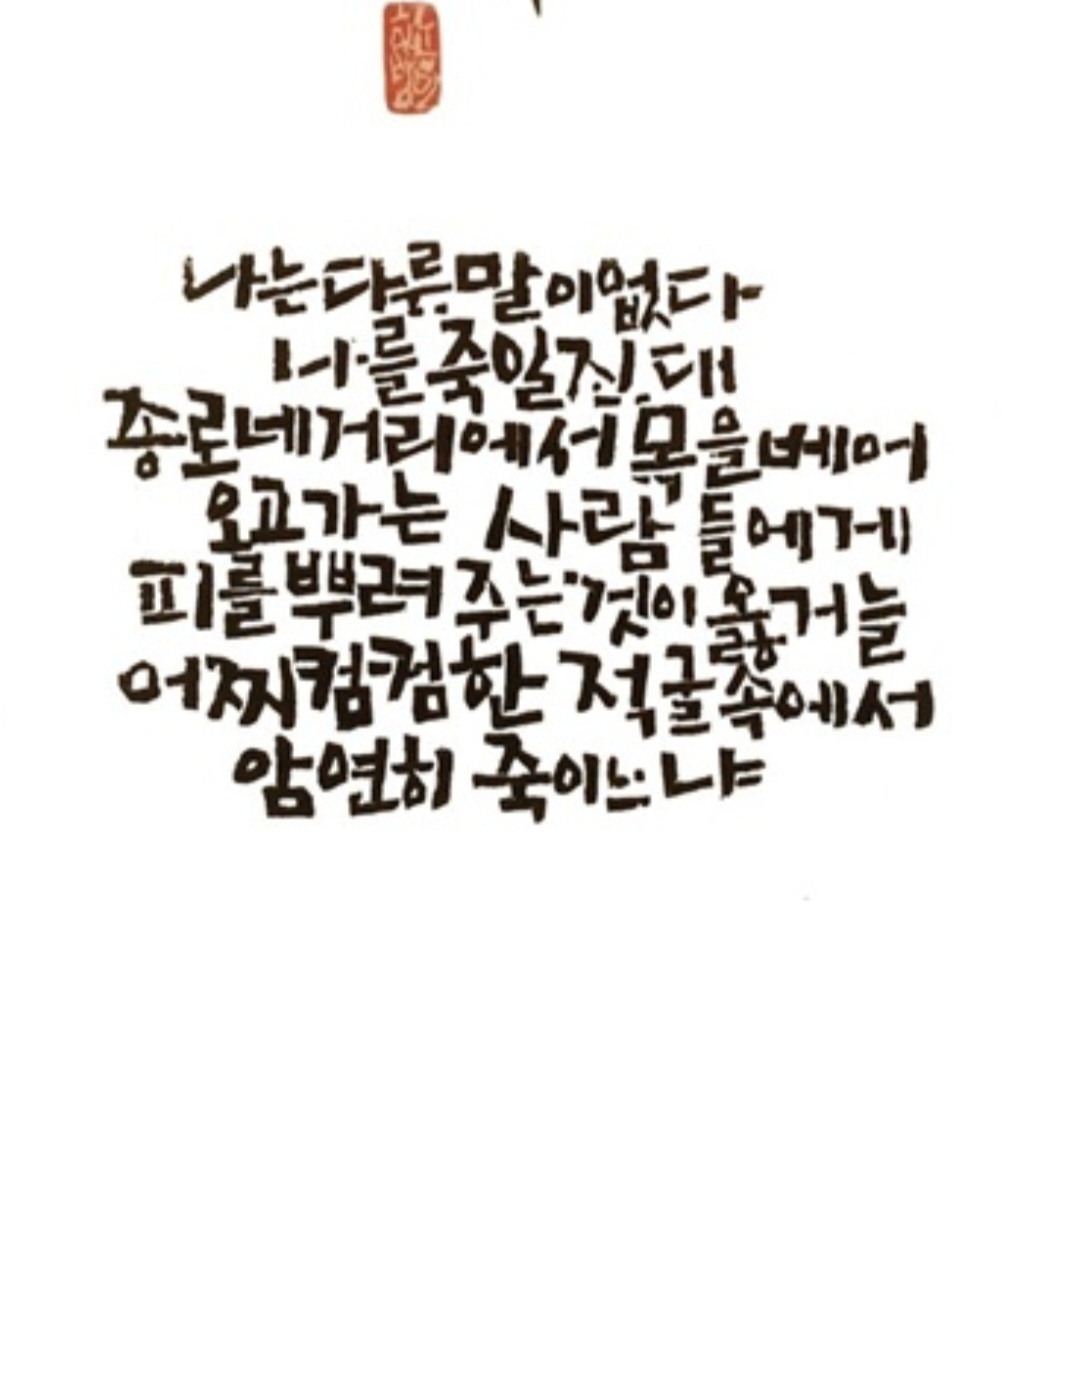 나는 다른 말이 없다
나를 죽일진대
종로 네거리에서 목을 베어
오고가는 사람들에게
피를 뿌려 주는 것이 옳거늘
어찌 컴컴한 적굴 속에서
암연히 죽이느냐